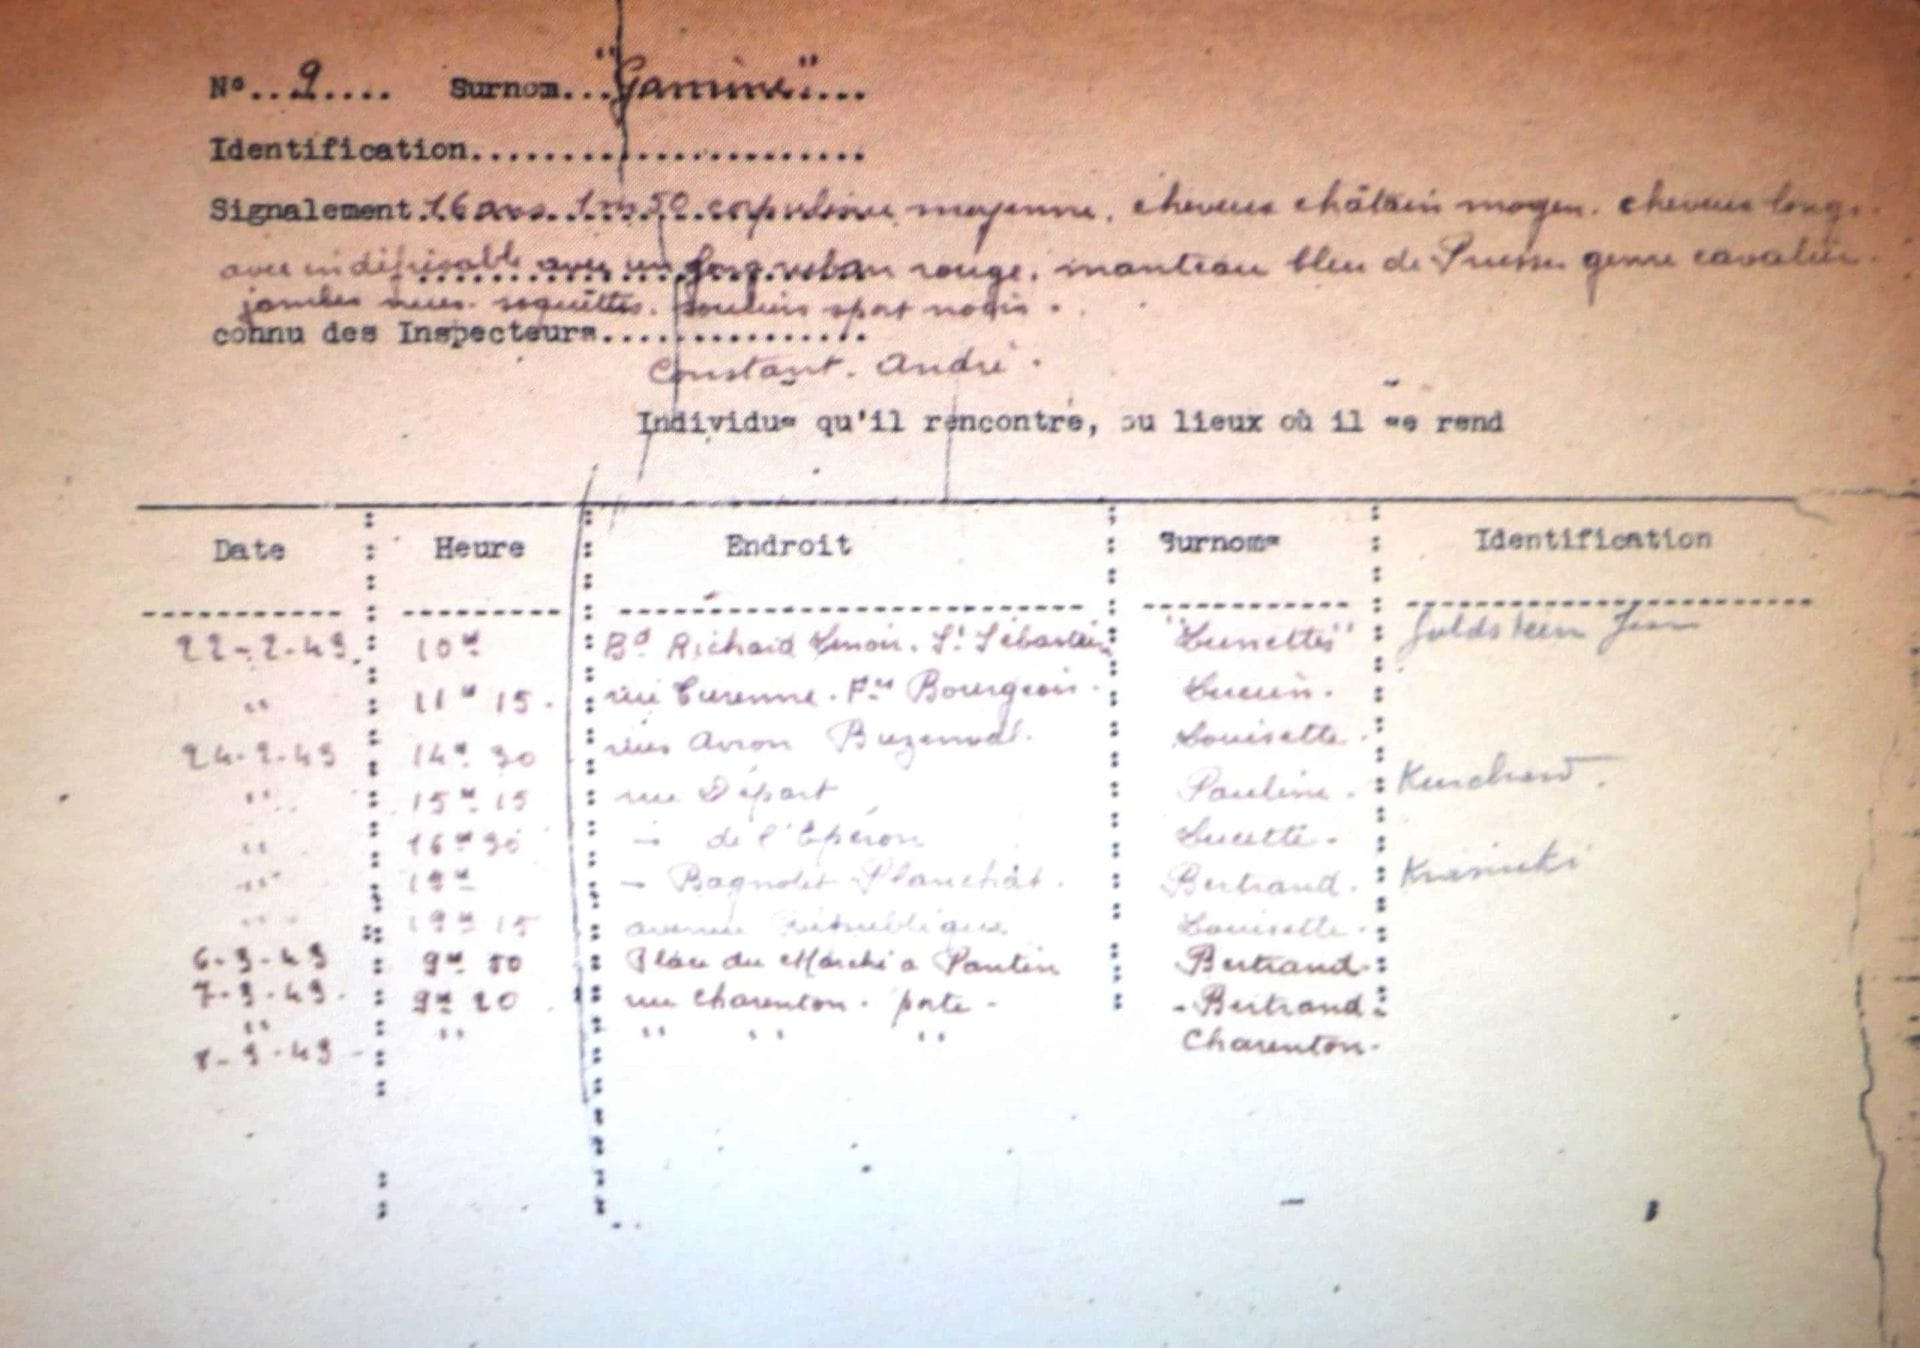 N°..9.... Surnom..."Gamine"...
Identification......................
Signalement.16 ans. 1m50 corpulence moyenne. cheveux châtain moyen. cheveux longs.
avec indéfrisable avec un ruban rouge. manteau bleu de Prusse genre cavalier.
jambes nues. soquettes. souliers sport noirs.
connu des Inspecteurs...............
Constant. André.
Individus qu'il rencontre, ou lieux où il se rend
Date Heure Endroit Surnoms Identification
22-2-43. 10H Bd Richard Lenoir. St Sébastien "Lunettes" Goldsteen Jean
" 11H 15. rue Turenne. Frs Bourgeois. Lucien.
24-2-43 14H 30 rues Avron Buzenval. Louisette.
" 15H 15 rue Départ Pauline.
" 16H 30 - de l'Eperon Lucette.
" 19H - Bagnolet Planchat. Bertrand. Krasucki
" 19H 15 avenue République. Louisette.
6-3-43 9H 50 Place du Marché à Pantin Bertrand.
7-3-43. 9H 20 rue Charenton. porte - - Bertrand
" " " " " Charenton.
8-3-43 -